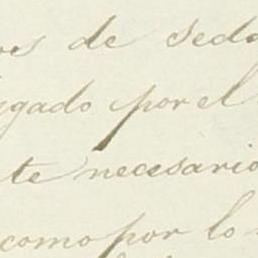 es de seda
gado por el
te necesario
como por lo